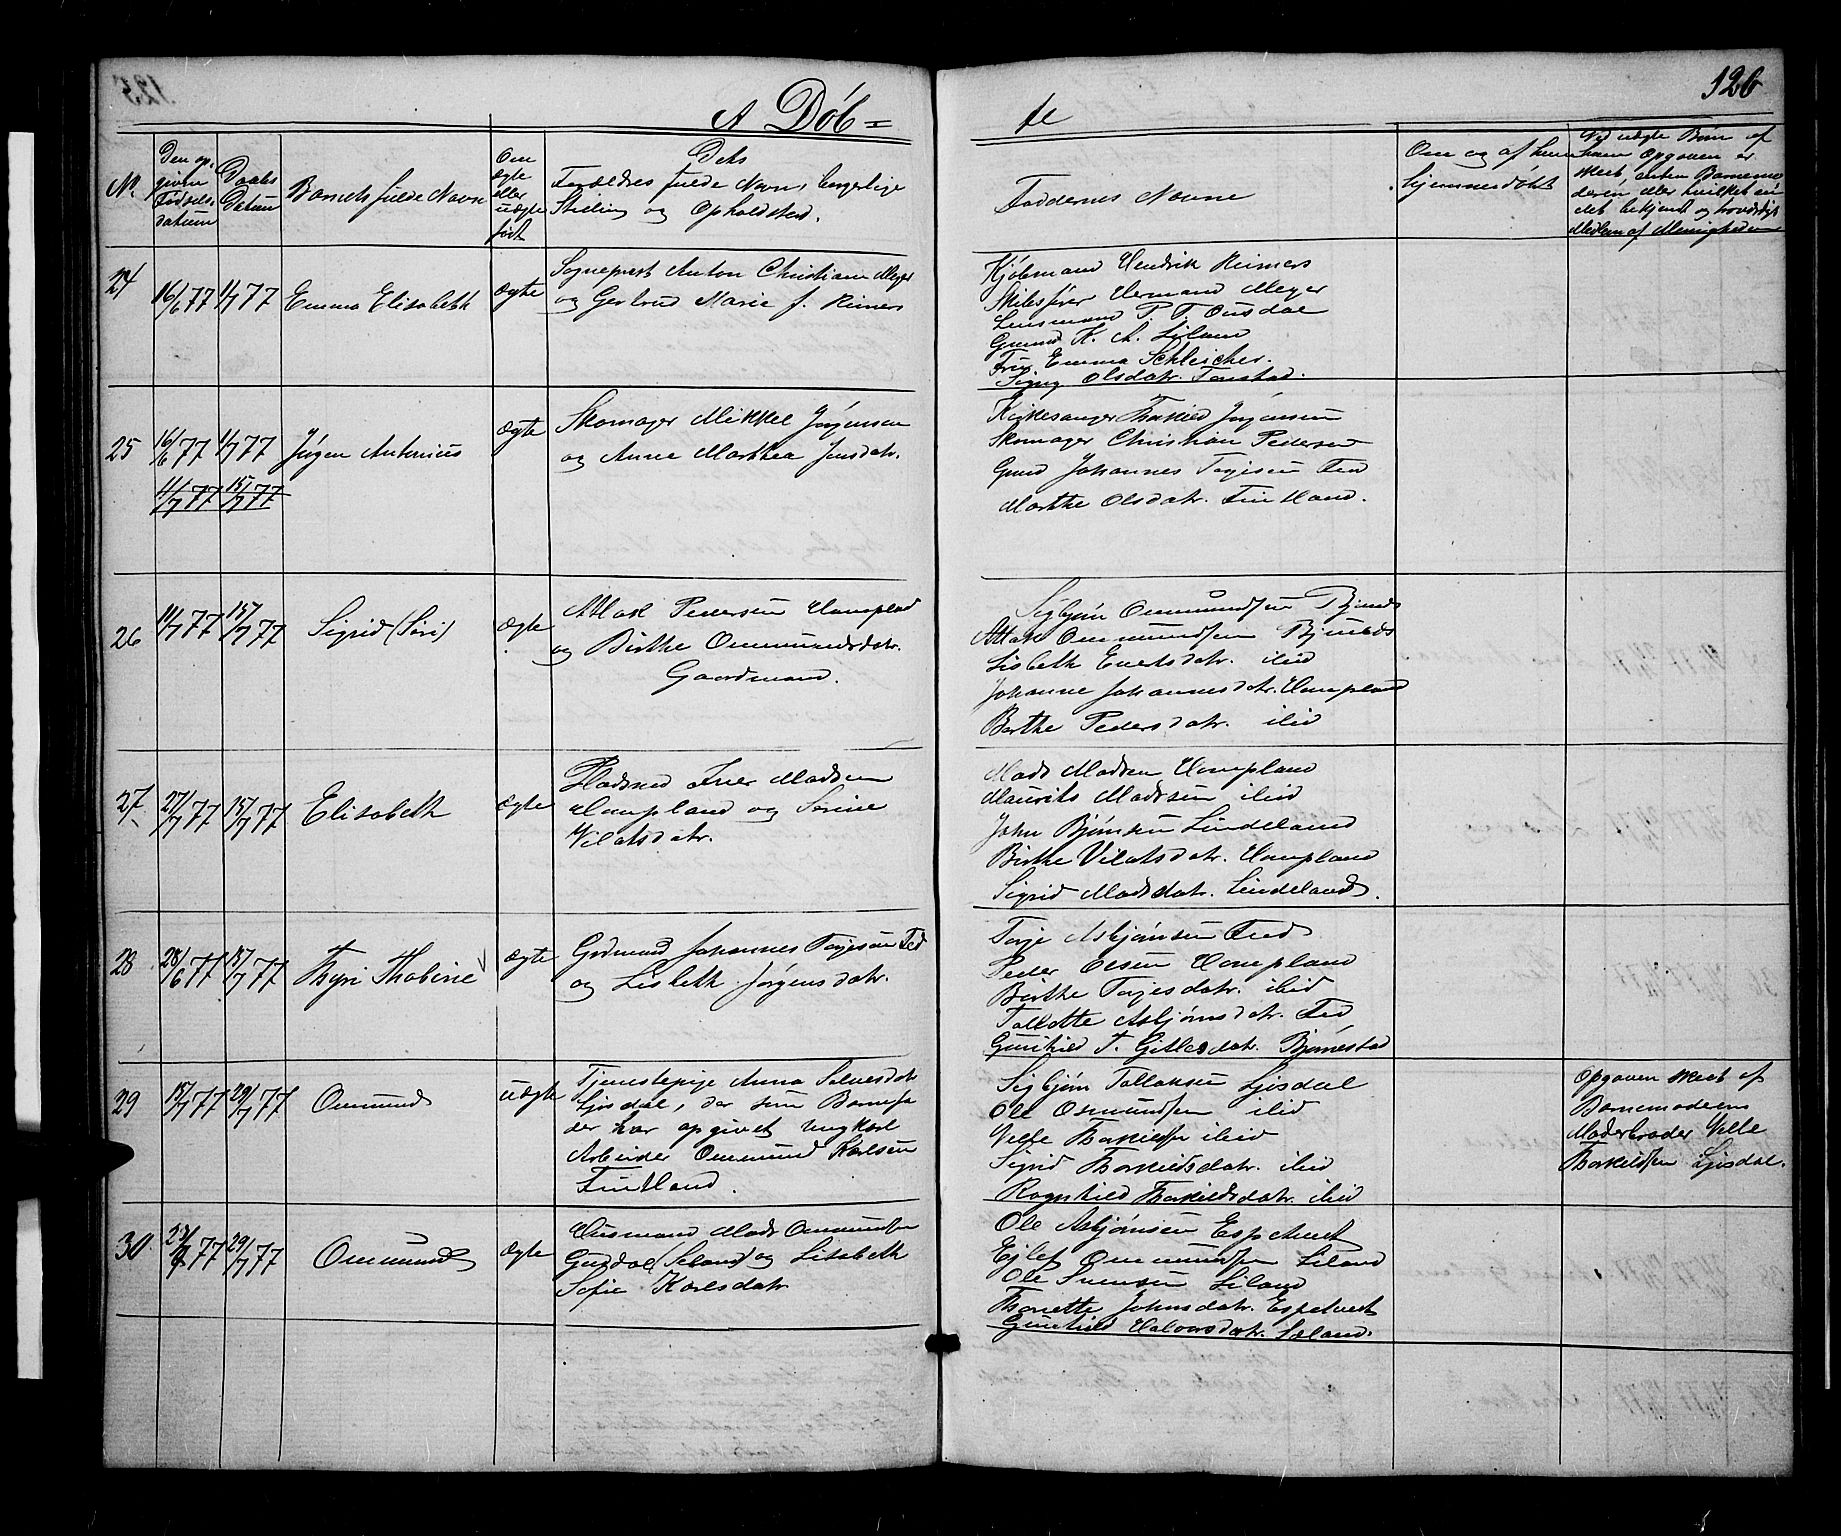 126
A Døb=
te
No.
Den op-
given
Fødsels-
datum
Daabs
Datum
Barnets fulde Navn
Om
ægte
eller
uægte
født
Dets
Forældres fulde Navn, borgerlige
Stilling og Opholdsted.
Faddernes Navne
Om og af hvem
hjemmedøbt
Ved uægte Børn af
hvem Opgaven er
skeet, enten Barnemo
deren eller hvilket an
det bekjent og troværdigt
Medlem af Menigheden
24
16/6 77
1/7 77
Emma Elisabeth
ægte
Sogneprest Anton Christian Meyer
og Gertrud Marie f. Reimers
Kjøbmand Hendrik Reimers
Skibsfører Herman Meyer
Lensmand P. T. Ousdal
Gmand K. A. Liland
Frøk Emma Schleicher.
Signy Olsdatr. Tonstad.
25
16/6 77
1/7 77
Jørgen Antonius
ægte
Skomager Mikkel Jørgensen
og Anne Marthea Jensdatr.
Kirkesanger Torkild Jørgensen
Skomager Christian Pedersen
Gmd Johannes Torjesen Fed
Marthe Olsdatr. Fintland.
11/7 77
15/7 77
26
11/7 77
15/7 77
Sigrid (Siri)
ægte
Atlak Pedersen Hompland
og Birthe Ommundsdatr.
Gaardmand.
Sigbjørn Ommundsen
Atlak Ommundsen
Lisbeth Evertsdatr. ibid
Johanne Johannesdatr. Hompland
Berthe Pedersdatr. ibid
27
27/7 77
15/7 77
Elisabeth
ægte
Pladsmd Iver Madsen
Hompland og Serine
Vilatsdatr.
Mads Madsen Hompland
Maurits Madsen ibid
John Bjørnsen Lindeland
Birthe Vilatsdatr. Hompland
Sigrid Madsdatr. Lindeland.
28
28/6 77
15/7 77
Thyri Thobine
ægte
Grdmand Johannes Torjesen Fed
og Lisbeth Jørgensdatr.
Torje Asbjørnsen Fed
Peder Olsen Hompland
Birthe Torjesdatr. ibid
Tallotte Asbjørnsdatr. Fed
Gunhild T. Gitlesdatr. Bjørnestad
29
15/7 77
29/7 77
Ommund
uægte
Tjenestepige Anna Salvesdatr
Ljosdal, der som Barnefa
der har opgivet ungkarl
Arbeider Ommund Karlsen
Fintland.
Sigbjørn Tallaksen Ljosdal
Ole Osmundsen ibid
Velle Torkildsen ibid
Sigrid Torkildsdatr. ibid
Ragnhild Torkildsdatr. ibid
Opgaven skeet af
Barnemoderens
Moderbroder Velle
Torkildsen Ljosdal.
30
29/7 77
Ommund
ægte
Husmand Mads Ommundsen
Gusdal (Seland) og Lisabeth
Sofie Karlsdatr
Ole Asbjørnsen Espetvedt
Ejlef Ommundsen Liland
Ole Svensen Liland
Tonette Johnsdatr. Espetvedt
Gunhild Halvorsdatr. Sæland.